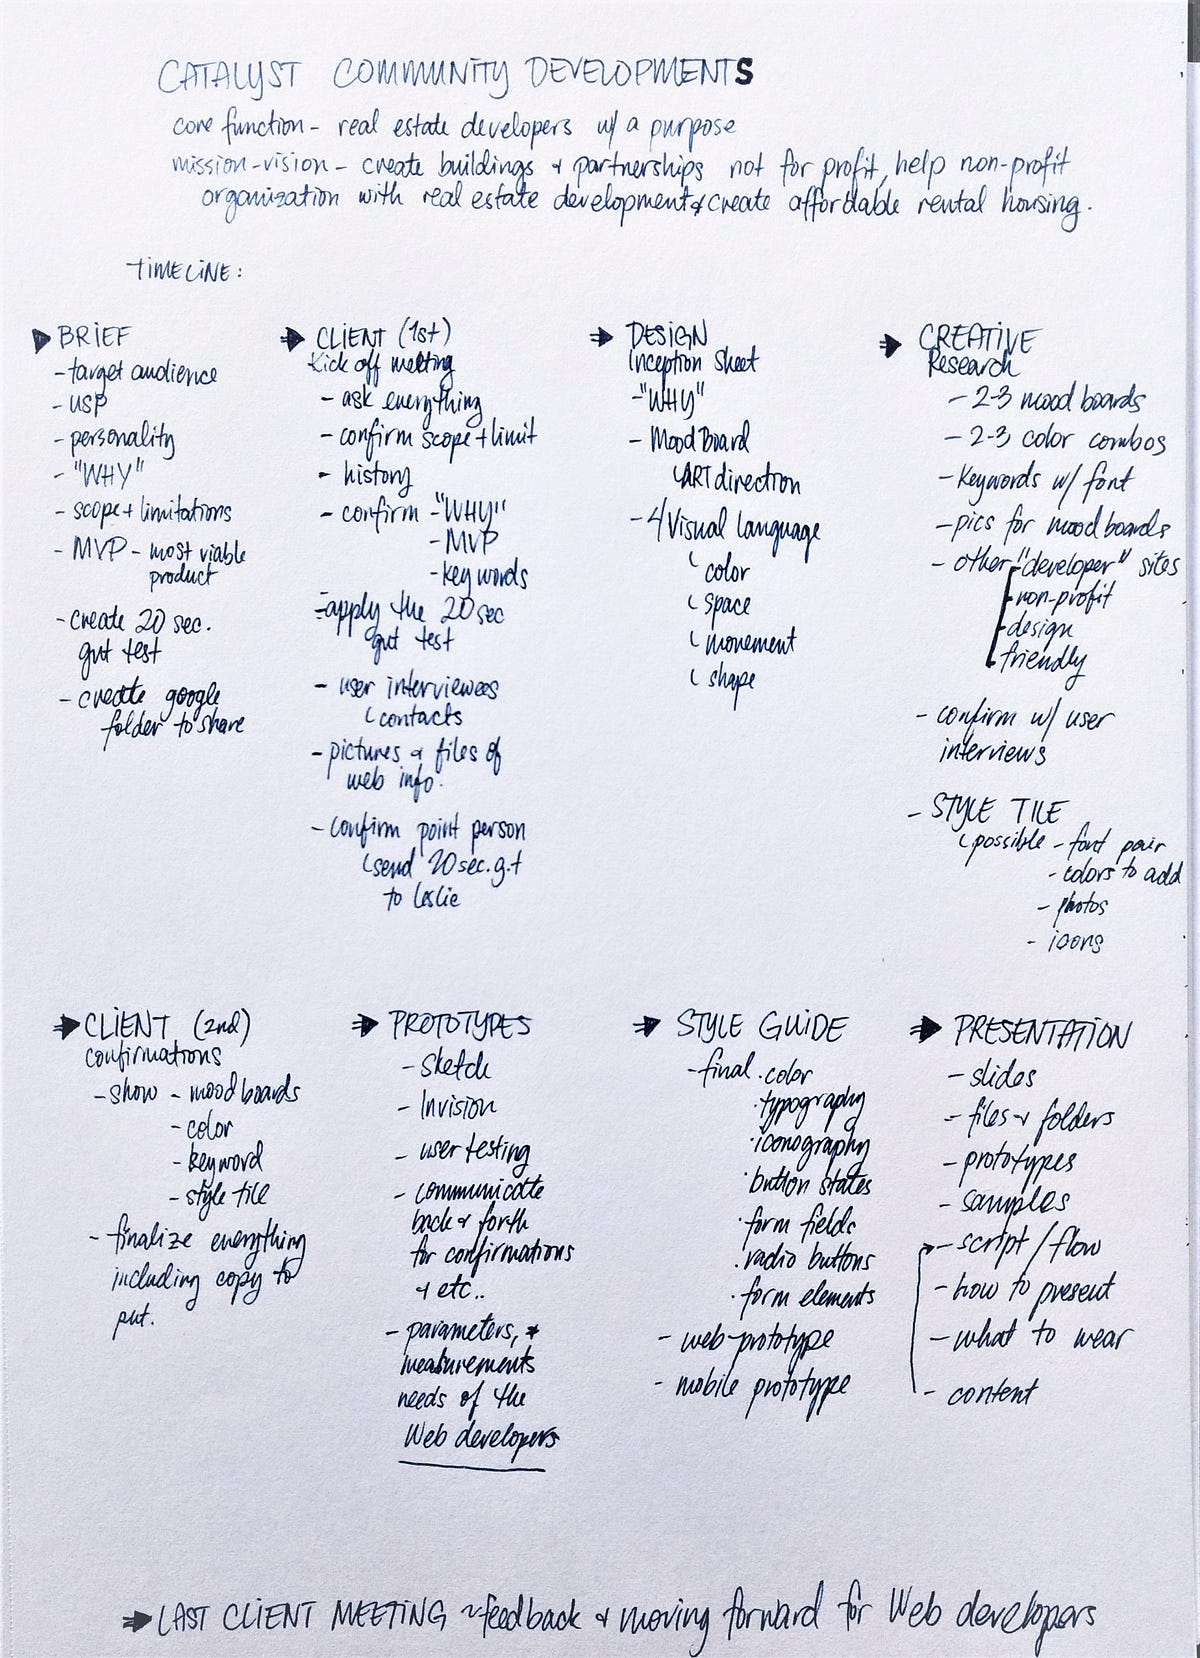 CATALYST COMMUNITY DEVELOPMENTS
core function - real estate developers w/ a purpose
mission-vision - create buildings & partnerships not for profit, help non-profit
organization with real estate development & create affordable rental housing.
TIMELINE:
BRIEF
- target audience
- USP
- personality
- "WHY"
- scope + limitations
- MVP - most viable
product
- create 20 sec.
gut test
- create google
folder to share
CLIENT (1st)
Kick off meeting
- ask everything
- confirm scope + limit
- history
- confirm - "WHY"
- MVP
- key words
- apply the 20 sec
gut test
- user interviewees
contacts
- pictures & files of
web info.
- confirm point person
send 20 sec. g.t
to leslie
DESIGN
Inception Sheet
- "WHY"
- Mood Board
ART direction
- 4 Visual language
color
space
movement
shape
CREATIVE
Research
- 2-3 mood boards
- 2-3 color combos
- Keywords w/ font
- pics for mood boards
- other "developer" sites
- non-profit
- design
friendly
- confirm w/ user
interviews
- STYLE TILE
possible - font pair
- colors to add
- photos
- icons
CLIENT (2nd)
confirmations
- show - mood boards
- color
- keyword
- style tile
- finalize everything
including copy to
put.
PROTOTYPES
- Sketch
- Invision
- user testing
- communicate
back & forth
for confirmations
& etc..
- parameters, &
measurements
needs of the
Web developers
STYLE GUIDE
- final . color
. typography
. iconography
. button states
. form fields
. radio buttons
. form elements
- web-prototype
- mobile prototype
PRESENTATION
- slides
- files & folders
- prototypes
- samples
- script / flow
- how to present
- what to wear
- content
LAST CLIENT MEETING ~ feedback & moving forward for Web developers